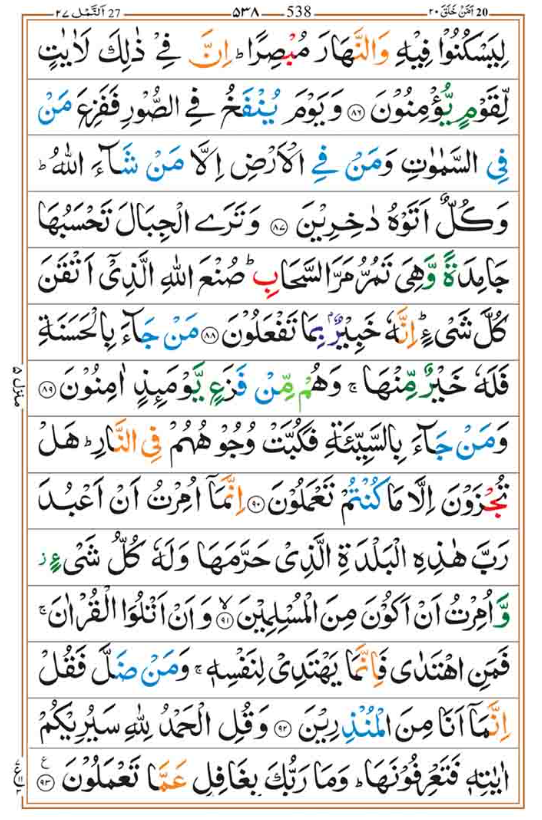 اَلنَّمْل ٢٧ 27 — ٥٣٨ — 538 — اَمَّنْ خَلَقَ ٢٠ 20
لِيَسْكُنُوْا فِيْهِ وَالنَّهَارَ مُبْصِرًا ؕ اِنَّ فِيْ ذٰلِكَ لَاٰيٰتٍ
لِّقَوْمٍ يُّؤْمِنُوْنَ ﴿٨٦﴾ وَيَوْمَ يُنْفَخُ فِي الصُّوْرِ فَفَزِعَ مَنْ
فِي السَّمٰوٰتِ وَمَنْ فِي الْاَرْضِ اِلَّا مَنْ شَآءَ اللّٰهُ ؕ
وَكُلٌّ اَتَوْهُ دٰخِرِيْنَ ﴿٨٧﴾ وَتَرَى الْجِبَالَ تَحْسَبُهَا
جَامِدَةً وَّهِىَ تَمُرُّ مَرَّ السَّحَابِ ؕ صُنْعَ اللّٰهِ الَّذِيْٓ اَتْقَنَ
كُلَّ شَيْءٍ ؕ اِنَّهٗ خَبِيْرٌۢ بِمَا تَفْعَلُوْنَ ﴿٨٨﴾ مَنْ جَآءَ بِالْحَسَنَةِ
فَلَهٗ خَيْرٌ مِّنْهَا ۚ وَهُمْ مِّنْ فَزَعٍ يَّوْمَئِذٍ اٰمِنُوْنَ ﴿٨٩﴾
وَمَنْ جَآءَ بِالسَّيِّئَةِ فَكُبَّتْ وُجُوْهُهُمْ فِي النَّارِ ؕ هَلْ
تُجْزَوْنَ اِلَّا مَا كُنْتُمْ تَعْمَلُوْنَ ﴿٩٠﴾ اِنَّمَآ اُمِرْتُ اَنْ اَعْبُدَ
رَبَّ هٰذِهِ الْبَلْدَةِ الَّذِيْ حَرَّمَهَا وَلَهٗ كُلُّ شَيْءٍ ز
وَّاُمِرْتُ اَنْ اَكُوْنَ مِنَ الْمُسْلِمِيْنَ ﴿٩١﴾ۙ وَاَنْ اَتْلُوَا الْقُرْاٰنَ ۚ
فَمَنِ اهْتَدٰى فَاِنَّمَا يَهْتَدِيْ لِنَفْسِهٖ ۚ وَمَنْ ضَلَّ فَقُلْ
اِنَّمَآ اَنَا مِنَ الْمُنْذِرِيْنَ ﴿٩٢﴾ وَقُلِ الْحَمْدُ لِلّٰهِ سَيُرِيْكُمْ
اٰيٰتِهٖ فَتَعْرِفُوْنَهَا ؕ وَمَا رَبُّكَ بِغَافِلٍ عَمَّا تَعْمَلُوْنَ ﴿٩٣﴾ ع
منزل ٥